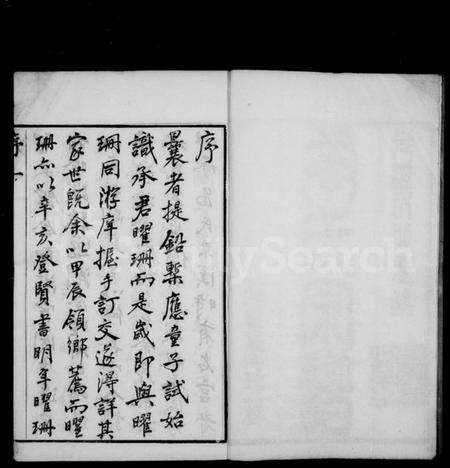 序
曩者提鉛槧應童子試始
識承君曜珊而是歲即與曜
珊同游庠握手訂交遂得詳其
家世旣余以甲辰領鄉薦而曜
珊亦以辛亥登賢書明年曜珊
序 一